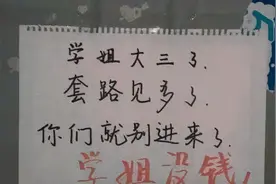 学姐大三了.
套路见多了.
你们就别进来了
学姐没钱!